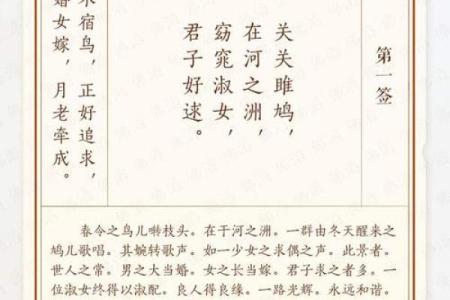 第一签
关关雎鸠，
在河之洲，
窈窕淑女，
君子好逑。
宿鸟，正好追求，
婚女嫁，月老牵成。
春令之鸟儿啭枝头。在干河之洲。一群由冬天醒来之
鸠儿歌唱。其婉转歌声。如一少女之求偶之声。此景者。
世人之常。男之大当婚。女之长当嫁。君子求之者多。一
位淑女终得以淑配。良人得良缘。一路光辉。永远和谐。